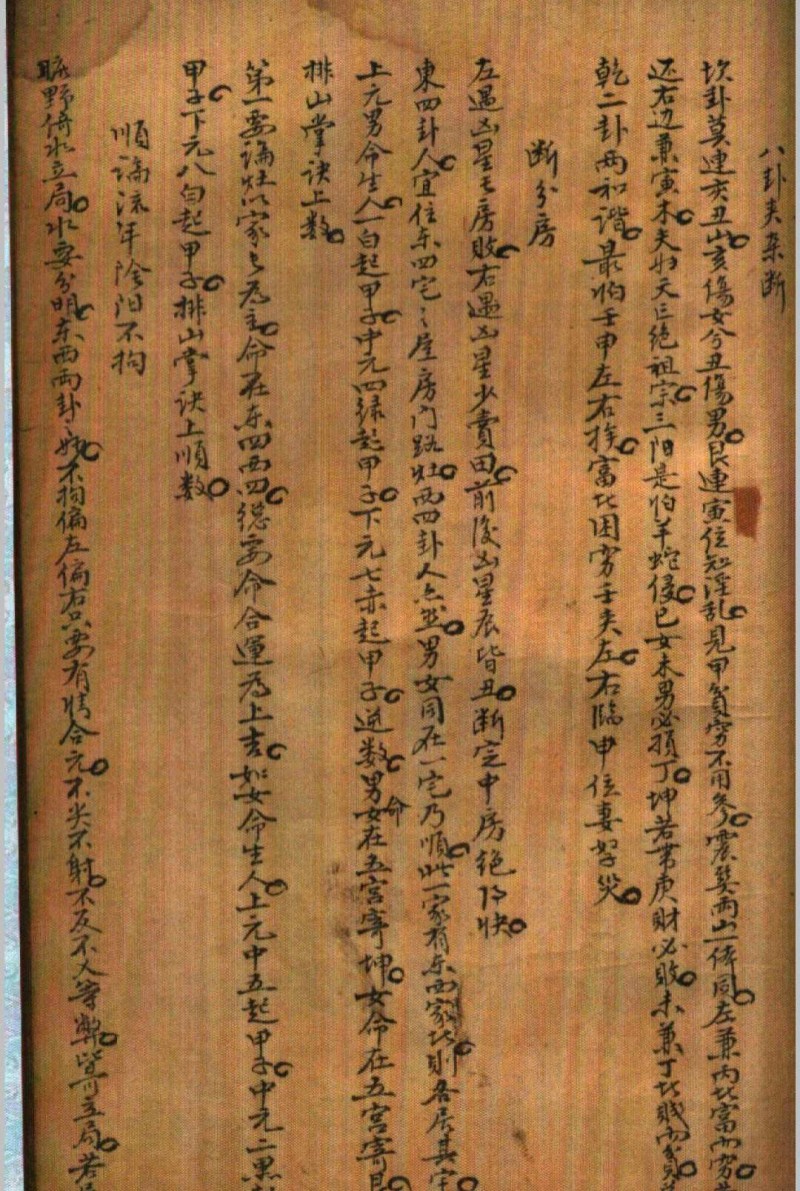 八卦夹杂断
坎卦莫连亥丑山。亥傷女兮丑傷男。艮連寅位知淫乱。見甲貧穷不用参。震巽两山一体同。左兼丙比富而穷
还右边兼寅木。夫妇夭亡绝祖宗。三阳是怕羊蛇侵。巳女未男必損丁。坤若带庚財必败。未兼丁比賤而貧
乾二卦两和谐。最怕壬申左右挨。富比困穷壬夹左。右臨申位妻孥災。
断分房
左遇凶星长房敗。右遇凶星少賣田。前後凶星辰皆丑。断定中房绝得快。
東四卦人。宜住东四宅之屋房门路灶。西四卦人亦然。男女同在一宅乃順。此一家有东西家。此則各居其宅。
上元男命生人。一白起甲子。中元四绿起甲子。下元七赤起甲子。逆数。男女命在五宫寄坤。女命在五宫寄艮。
排山掌诀上数。
第一要論灶。以家长為主。命在东四西四。總要命合運為上吉。如女命生人。上元中五起甲子。中元二黑
甲子。下元八白起甲子。排山掌诀上順数。
順論流年陰阳不拘
曠野倚水立局。水要分明。东西两卦好。不拘偏左偏右。只要有情合元。不尖不射。不反不大等弊。皆可立局。若